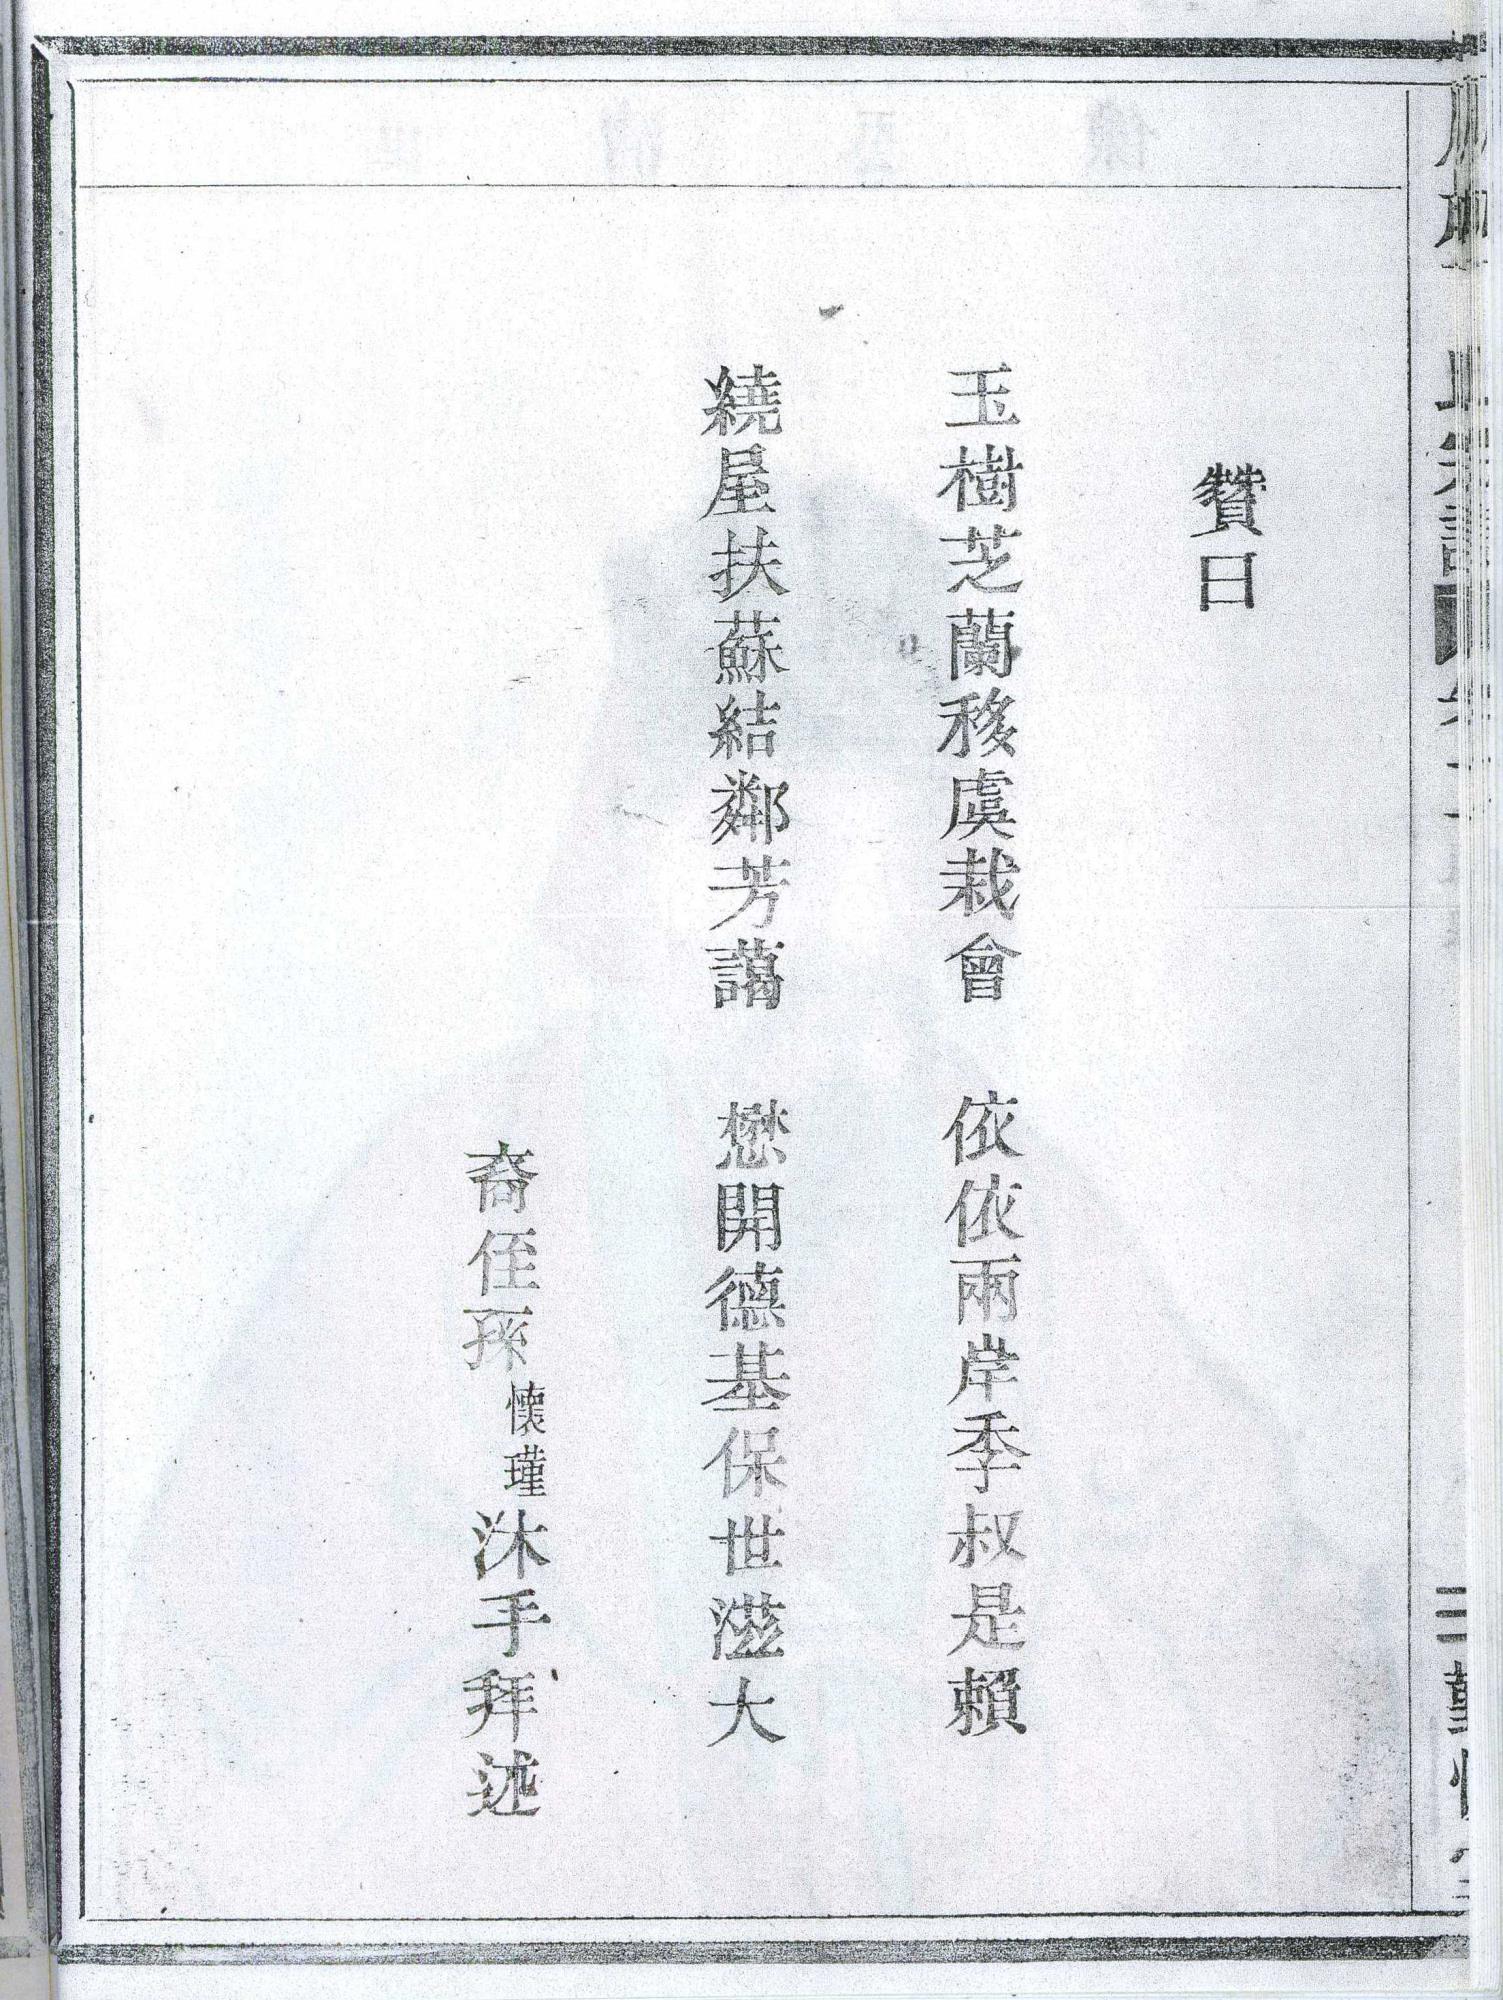 贊曰
玉樹芝蘭移虞栽會　依依兩岸季叔是賴
繞屋扶蘇結鄰芳藹　懋開德基保世滋大
裔侄孫懷瑾沐手拜述